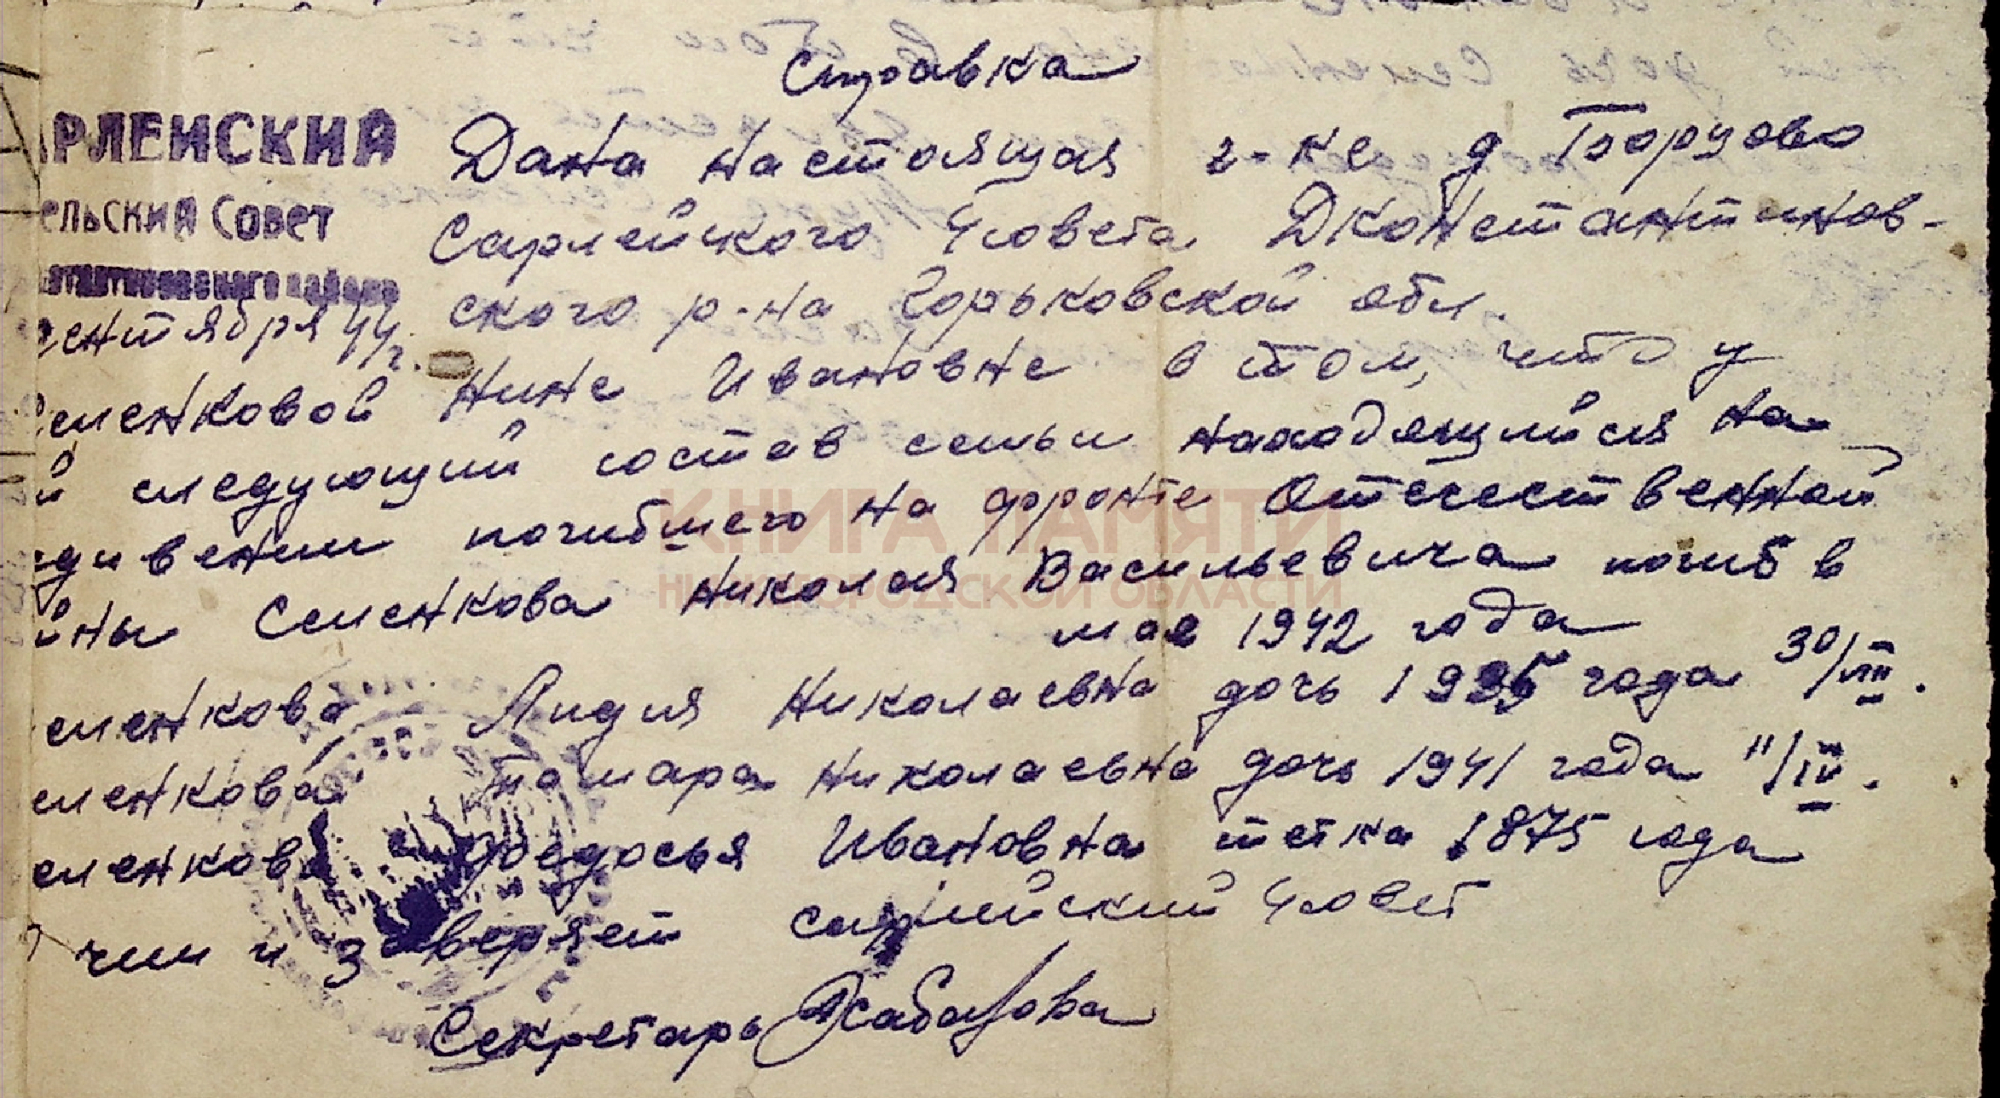 Справка
АРЛЕЙСКИЙ
ельский Совет
антиновского района
сентября 44 г.
Дана настоящая г-ке д Борцово
Сарлейского с/совета Дконстантинов-
ского р-на Горьковской обл.
Семенковой Нине Ивановне в том, что у
й следующий состав семьи находящийся на
дивении погибшего на фронте Отечественной
йны Семенкова Николая Васильевича погиб в
мае 1942 года
еменкова Лидия Николаевна дочь 1935 года 30/VIII.
еменкова Тамара Николаевна дочь 1941 года 11/IV.
еменкова Федосья Ивановна тетка 1875 года
чем и заверяет сарлейский с/совет
Секретарь
КНИГА ПАМЯТИ
НИЖЕГОРОДСКОЙ ОБЛАСТИ